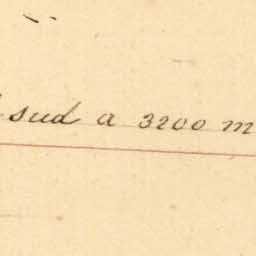 sud a 3200 m